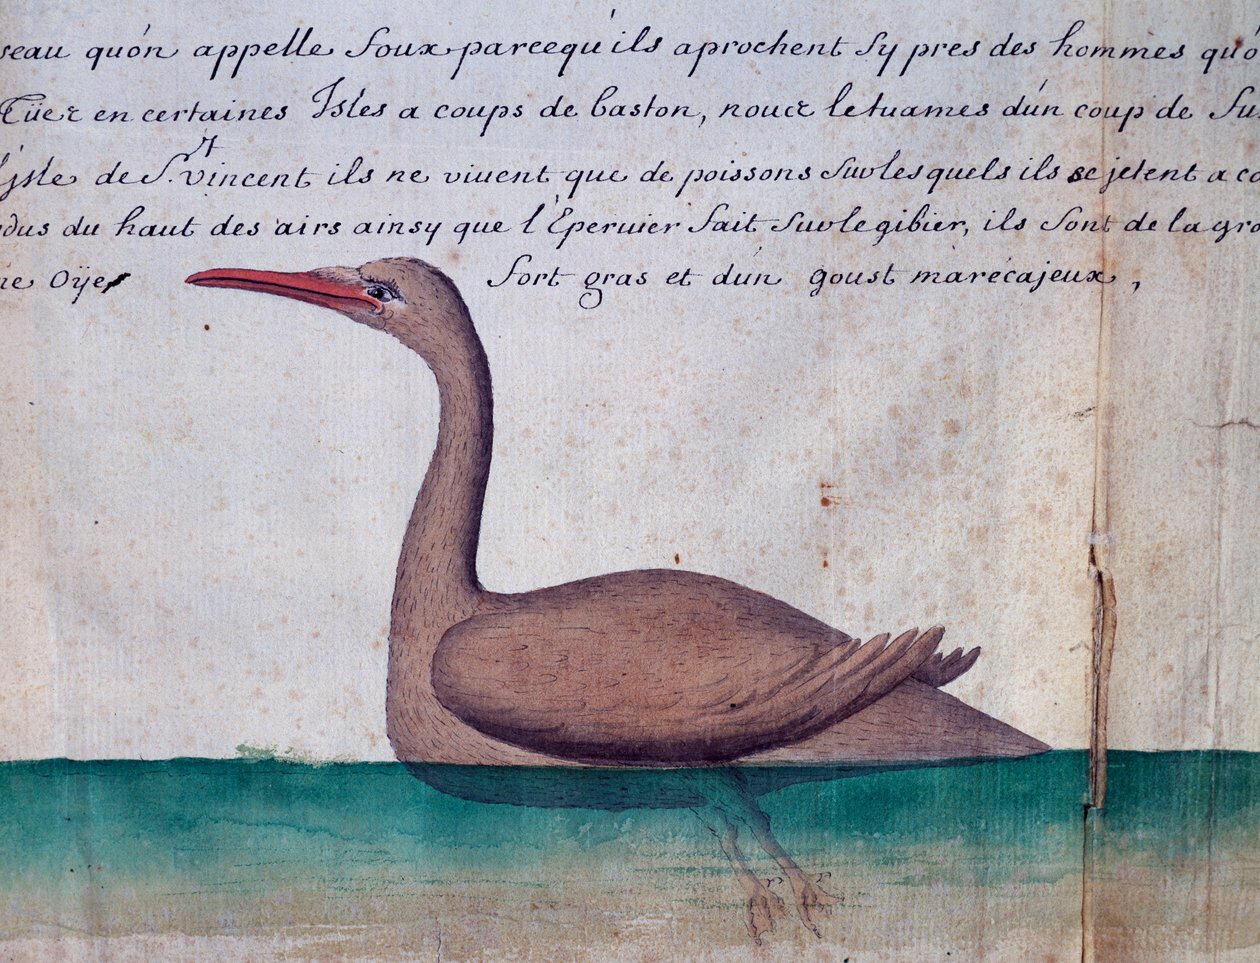 seau quón appelle foux parcequ'ils aprochent sy pres des hommes quó
Tüer en certaines Isles a coups de baston, nouce letuames dún coup de fu
l'jsle de S.^t vincent ils ne viuent que de poissons surlesquels ils se jetent a co
dus du haut des airs ainsy que l'Eperuier fait surle gibier, ils sont de la gro
ne oÿe fort gras et dún goust marécajeux,